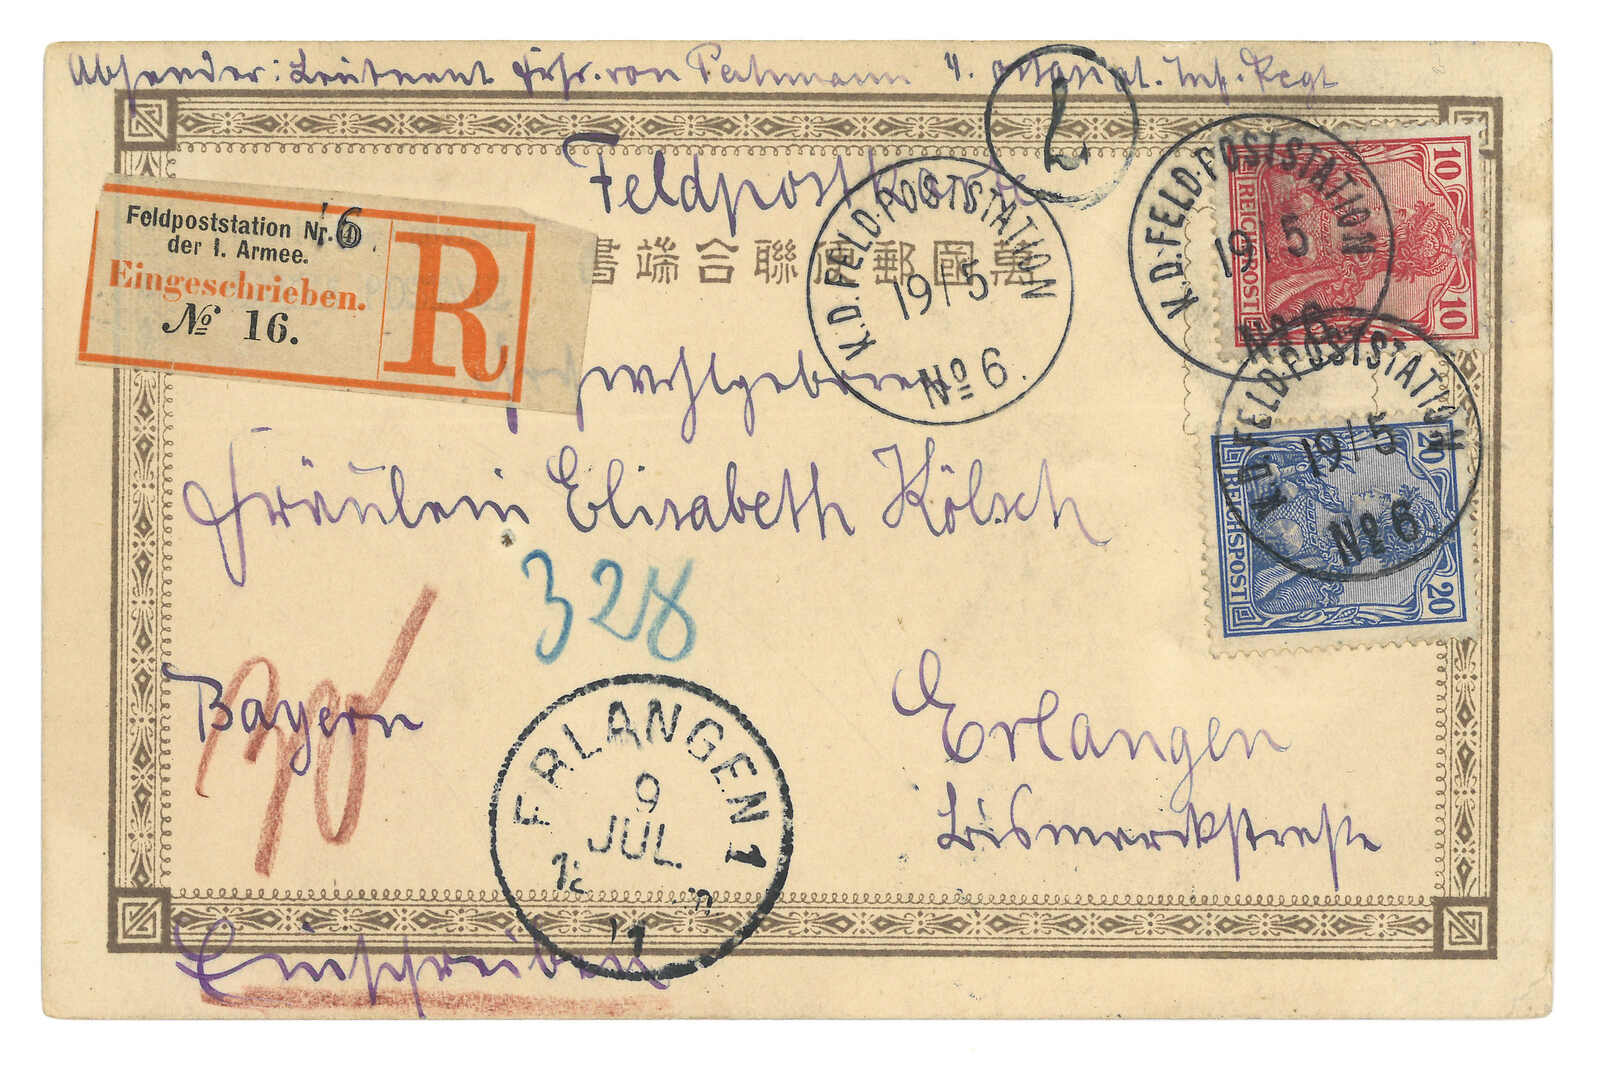 Absender: Leutnant Frhr. von Pechmann 4. ostasiat. Inf. Regt
Feldpostkarte
萬國郵便聯合端書
Feldpoststation Nr. 6
der I. Armee.
Eingeschrieben.
№ 16.
R
K.D. FELD-POSTSTATION
19/5
№ 6.
K.D. FELD-POSTSTATION
19/5
№ 6
K.D. FELD-POSTSTATION
19/5
№ 6.
10 10
REICHSPOST
20 20
REICHSPOST
2
wohlgeboren
Fräulein Elisabeth Kölsch
328
Bayern
Erlangen
Bismarckstraße
ERLANGEN 1
9
JUL.
Einschreiben